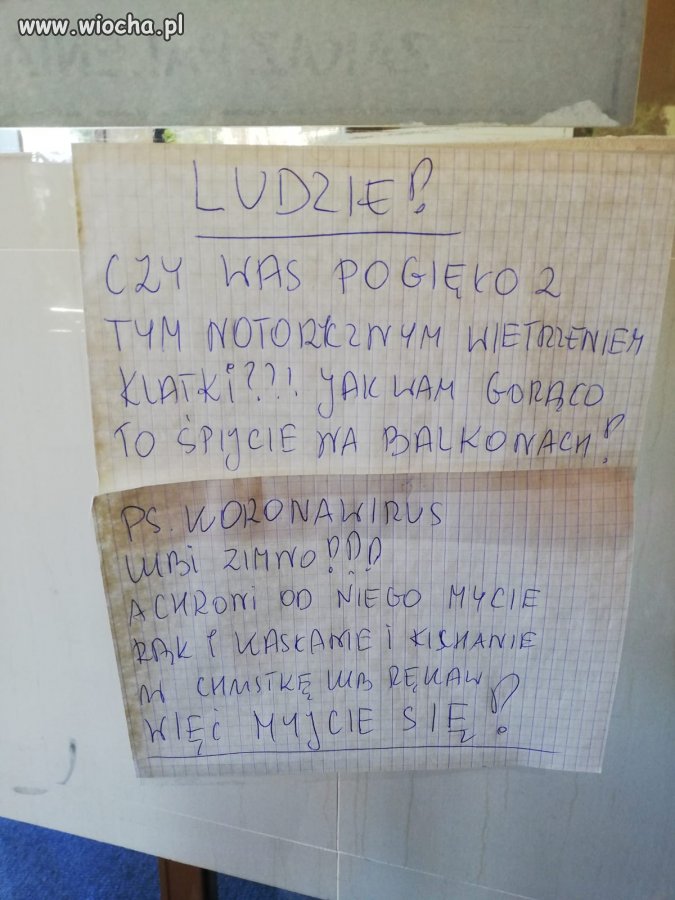 www.wiocha.pl
LUDZIE!
CZY WAS POGIĘŁO Z
TYM NOTORYCZNYM WIETRZENIEM
KLATKI???! JAK WAM GORĄCO
TO ŚPIJCIE NA BALKONACH!
PS. KORONAWIRUS
LUBI ZIMNO!!!
A CHRONI OD NIEGO MYCIE
RĄK I KASŁANIE I KICHANIE
W CHUSTKĘ LUB RĘKAW
WIĘC MYJCIE SIĘ!